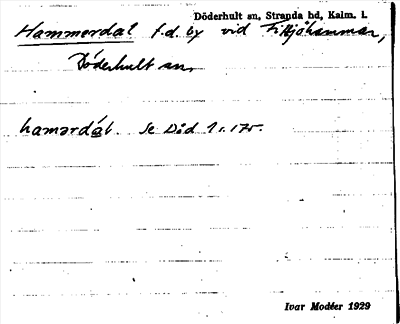 Döderhult sn, Stranda hd, Kalm. l.
Hammerdal f.d. by vid Fittjehammar,
Döderhult sn.
hamərdál. Se Död 1 s. 175.
Ivar Modéer 1929